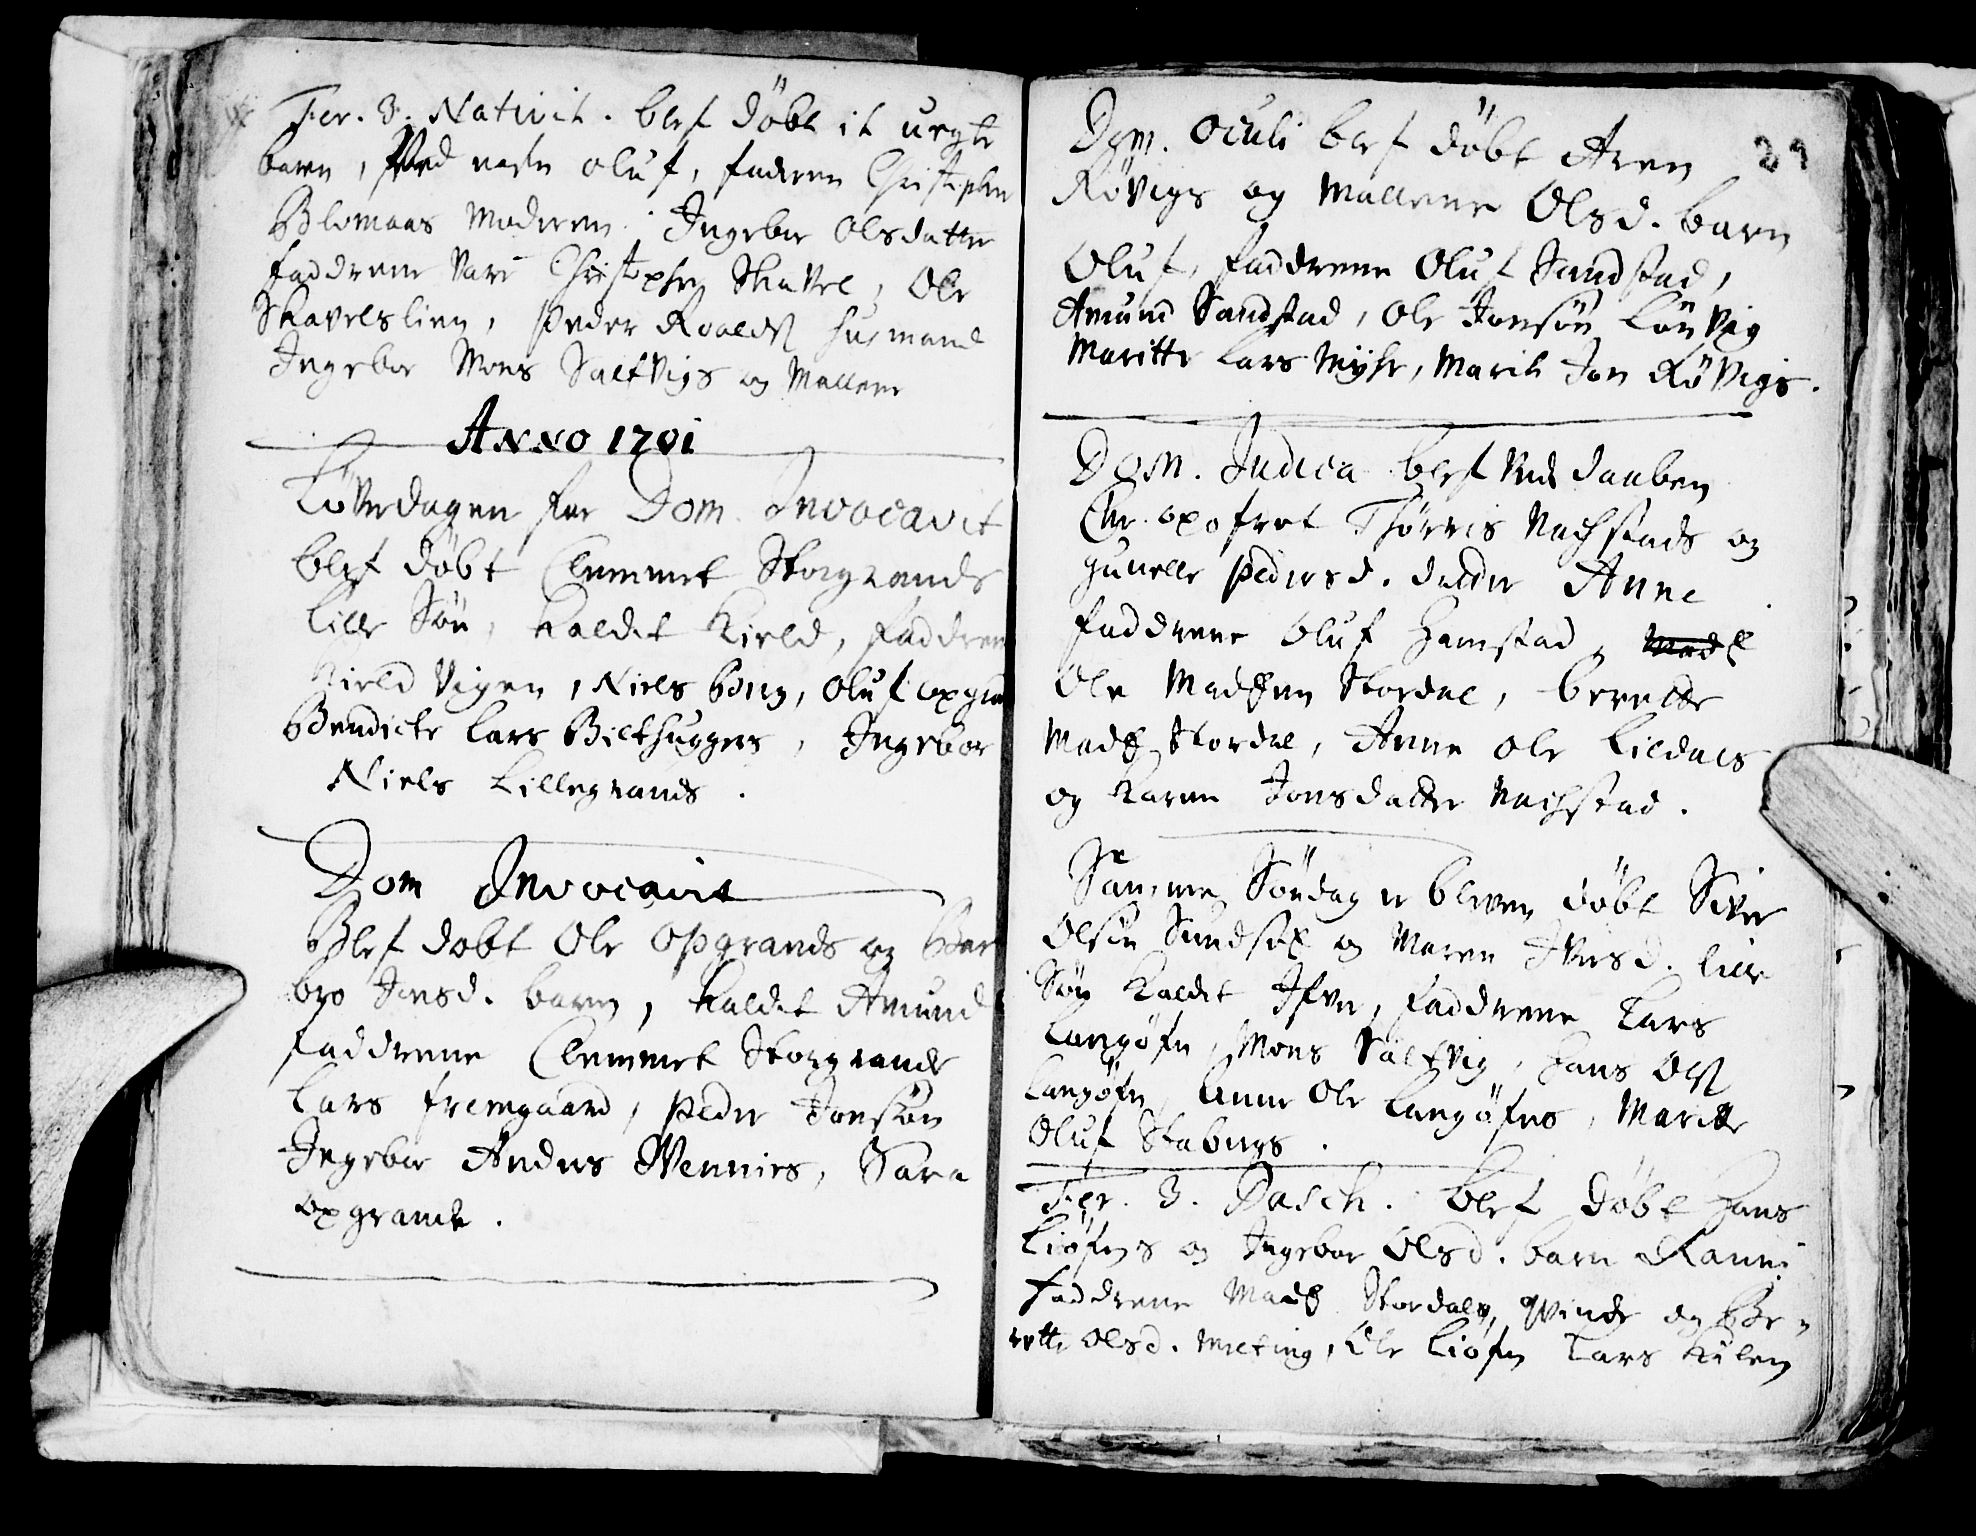 Fer. 3. Nativit. blef döbt it uegte
barn, ved nafn Oluf, faderen Christopher
Blomaas Moderen Ingebor Olsdatter
faddrene vare Christopher Skavel, Ole
Skavelslien, Peder Roalds husmand
Ingebor Mons Saltvigs og Mallene
Anno 1701
Löverdagen for Dom. Invocavit
blef döbt Clemmet Storgrands
lille Sön, kaldet Kield, faddrene
Kield Vigen, Niels Borg, Oluf
Bendicte Lars Bilthuggers, Ingebor
Niels Lillegrands.
Dom Invocavit
Blef döbt Ole Opgrands og Bar
bro Jonsd. barn, kaldet Amund
faddrene Clemmet Storgrande
Lars fremgaard, Peder Jonsön
Ingebor Anders Wennies, Sara
opgrande.
29
Dom. Oculi blef döbt Aren
Rövigs og Mallene Olsd. barn
Oluf, faddrene Oluf Sandstad,
Amund Sandstad, Ole Jonsön Lönvig
Maritte Lars Myhr, Marit Jon Rövigs.
Dom. Judica blef ved daaben
Chr. opofret Thörris Nachstads og
Gunelle Pedersd. datter Anne
faddrene Oluf Hamstad, Mads
Ole Madssen Stordal, berette
Mads Stordal, Anne Ole Lildals
og Karen Jonsdatter Nachstad.
Samme Söndag er bleven döbt Siver
Olsön Sundsös og Maren Iversd. lille
Sön kaldet Ifver, faddrene Lars
Langöfn, Mons Saltvig, Hans Ols
Langöfn, Anne Ole Langöfns, Maritte
Oluf Stabergs.
Fer. 3. Pasch. blef döbt Hans
Liöfns og Ingebor Olsd. barn Ranni
faddrene Mads Stordals, Qvinde og Be-
rette Olsd. Melting, Ole Liöfn Lars Kilen